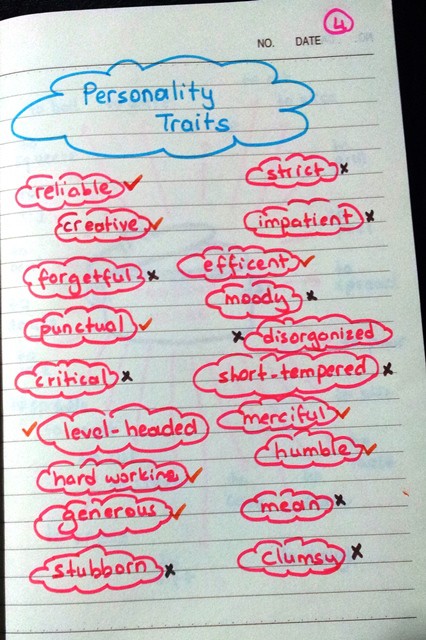 4
NO. DATE
Personality
Traits
reliable ✓
creative ✓
forgetful ×
punctual ✓
critical ×
✓ level-headed
hard working ✓
generous ✓
stubborn ×
strict ×
impatient ×
efficent ✓
moody ×
× disorganized
short-tempered ×
merciful ✓
humble ✓
mean ×
clumsy ×